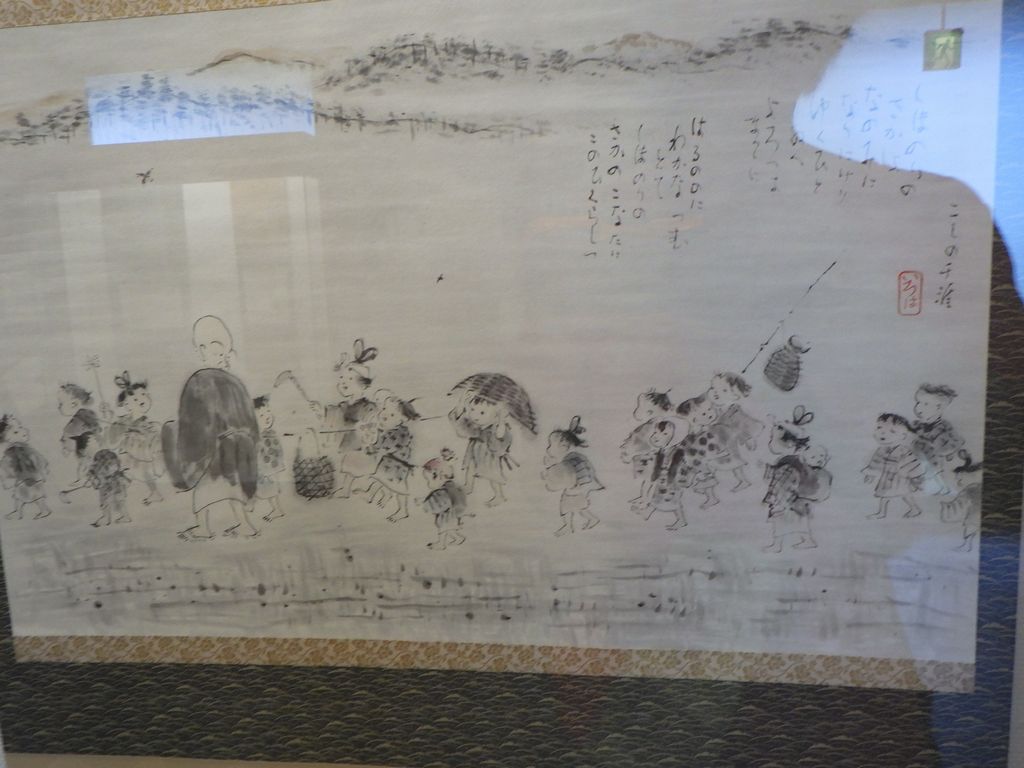 こしの千涯
いろは
しほのりの
さかは
なのみに
なりにけり
ゆくひと
しのへ
よろつよ
まてに
はるののに
わかなつむ
とて
しほのりの
さかのこなたに
このひくらしつ